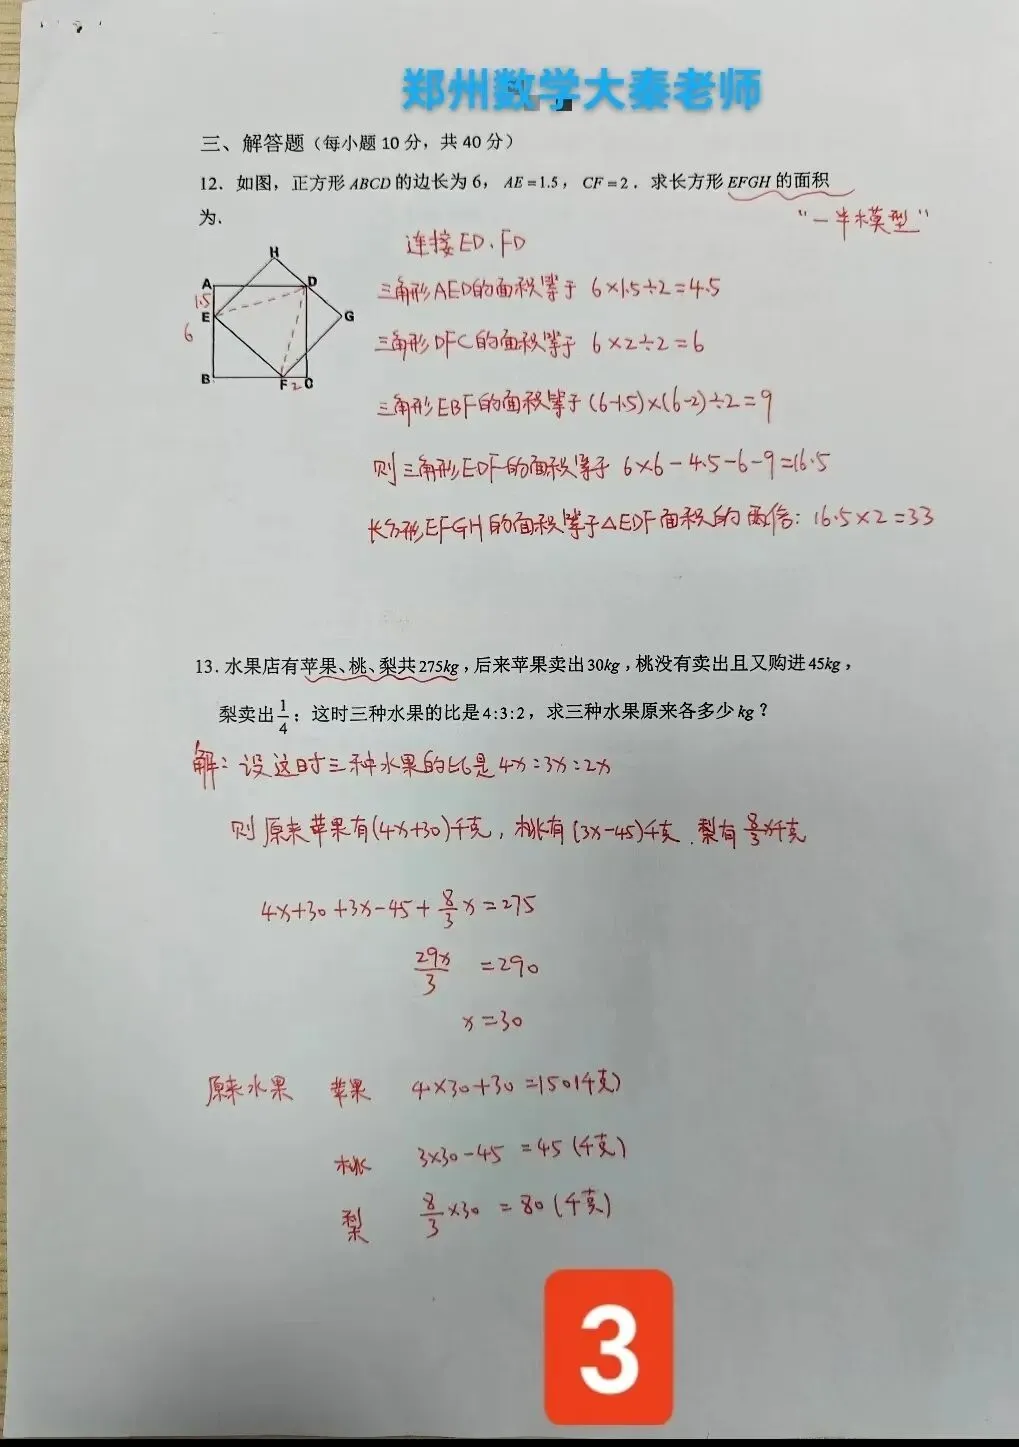 郑州数学大秦老师
三、解答题（每小题10分，共40分）
12. 如图，正方形ABCD的边长为6，AE=1.5，CF=2．求长方形EFGH的面积
为.
"一半模型"
连接ED、FD
H
A
D
1.5
E
G
6
B
F
2
C
三角形AED的面积等于 6×1.5÷2=4.5
三角形DFC的面积等于 6×2÷2=6
三角形EBF的面积等于(6-1.5)×(6-2)÷2=9
则三角形EDF的面积等于 6×6-4.5-6-9=16.5
长方形EFGH的面积等于△EDF面积的两倍：16.5×2=33
13. 水果店有苹果、桃、梨共275kg，后来苹果卖出30kg，桃没有卖出且又购进45kg，
梨卖出1/4；这时三种水果的比是4:3:2，求三种水果原来各多少kg？
解：设这时三种水果的比是4x:3x:2x
则原来苹果有(4x+30)千克，桃有(3x-45)千克、梨有8/3x千克
4x+30+3x-45+8/3x=275
29x/3=290
x=30
原来水果 苹果 4×30+30=150(千克)
桃 3×30-45=45(千克)
梨 8/3×30=80(千克)
3